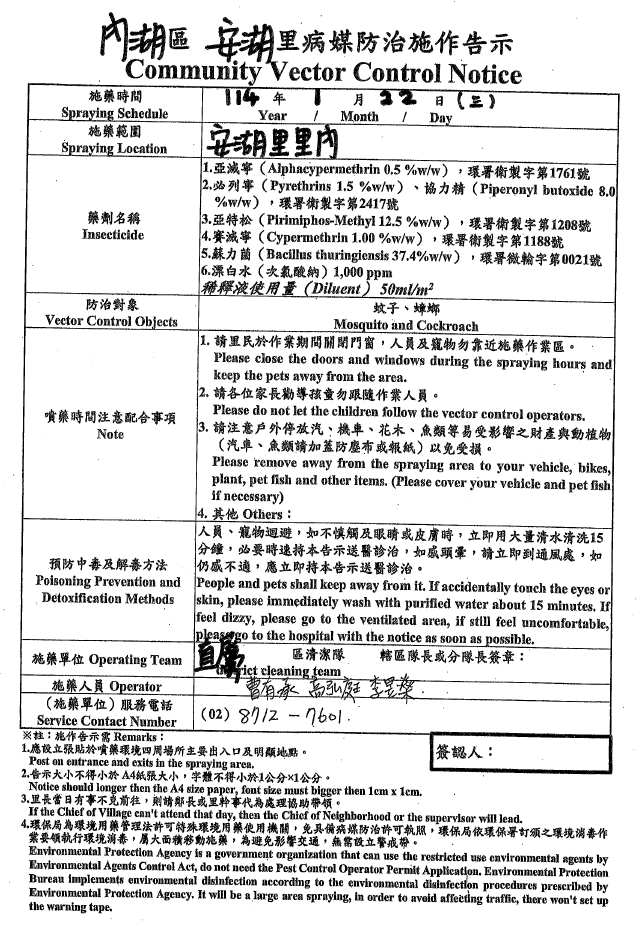 內湖區 安湖里病媒防治施作告示
Community Vector Control Notice
施藥時間
Spraying Schedule
114 年 1 月 22 日(三)
Year / Month / Day
施藥範圍
Spraying Location
安湖里里內
藥劑名稱
Insecticide
1.亞滅寧(Alphacypermethrin 0.5 %w/w),環署衛製字第1761號
2.必列寧(Pyrethrins 1.5 %w/w)、協力精(Piperonyl butoxide 8.0
%w/w),環署衛製字第2417號
3.亞特松(Pirimiphos-Methyl 12.5 %w/w),環署衛製字第1208號
4.賽滅寧(Cypermethrin 1.00 %w/w),環署衛製字第1188號
5.蘇力菌(Bacillus thuringiensis 37.4%w/w),環署微輸字第0021號
6.漂白水(次氯酸納)1,000 ppm
稀釋液使用量(Diluent)50ml/m²
防治對象
Vector Control Objects
蚊子、蟑螂
Mosquito and Cockroach
噴藥時間注意配合事項
Note
1. 請里民於作業期間關閉門窗,人員及寵物勿靠近施藥作業區。
Please close the doors and windows during the spraying hours and
keep the pets away from the area.
2. 請各位家長勸導孩童勿跟隨作業人員。
Please do not let the children follow the vector control operators.
3. 請注意戶外停放汽、機車、花木、魚類等易受影響之財產與動植物
(汽車、魚類請加蓋防塵布或報紙)以免受損。
Please remove away from the spraying area to your vehicle, bikes,
plant, pet fish and other items. (Please cover your vehicle and pet fish
if necessary)
4. 其他 Others:
預防中毒及解毒方法
Poisoning Prevention and
Detoxification Methods
人員、寵物迴避,如不慎觸及眼睛或皮膚時,立即用大量清水清洗15
分鐘,必要時速持本告示送醫診治,如感頭暈,請立即到通風處,如
仍感不適,應立即持本告示送醫診治。
People and pets shall keep away from it. If accidentally touch the eyes or
skin, please immediately wash with purified water about 15 minutes. If
feel dizzy, please go to the ventilated area, if still feel uncomfortable,
please go to the hospital with the notice as soon as possible.
施藥單位 Operating Team
直屬 區清潔隊 轄區隊長或分隊長簽章:
district cleaning team
施藥人員 Operator
曹有承 高弘庭 李昱燊
(施藥單位)服務電話
Service Contact Number
(02) 8712-7601.
※註:施作告示需 Remarks:
1.應設立張貼於噴藥環境四周場所主要出入口及明顯地點。
Post on entrance and exits in the spraying area.
簽認人:
2.告示大小不得小於 A4紙張大小,字體不得小於1公分×1公分。
Notice should longer then the A4 size paper, font size must bigger then 1cm x 1cm.
3.里長當日有事不克前往,則請鄰長或里幹事代為處理協助帶領。
If the Chief of Village can't attend that day, then the Chief of Neighborhood or the supervisor will lead.
4.環保局為環境用藥管理法許可特殊環境用藥使用機關,免具備病媒防治許可執照,環保局依環保署訂頒之環境消毒作
業要領執行環境消毒,屬大面積移動施藥,為避免影響交通,無需設立警戒帶。
Environmental Protection Agency is a government organization that can use the restricted use environmental agents by
Environmental Agents Control Act, do not need the Pest Control Operator Permit Application. Environmental Protection
Bureau implements environmental disinfection according to the environmental disinfection procedures prescribed by
Environmental Protection Agency. It will be a large area spraying, in order to avoid affecting traffic, there won't set up
the warning tape.